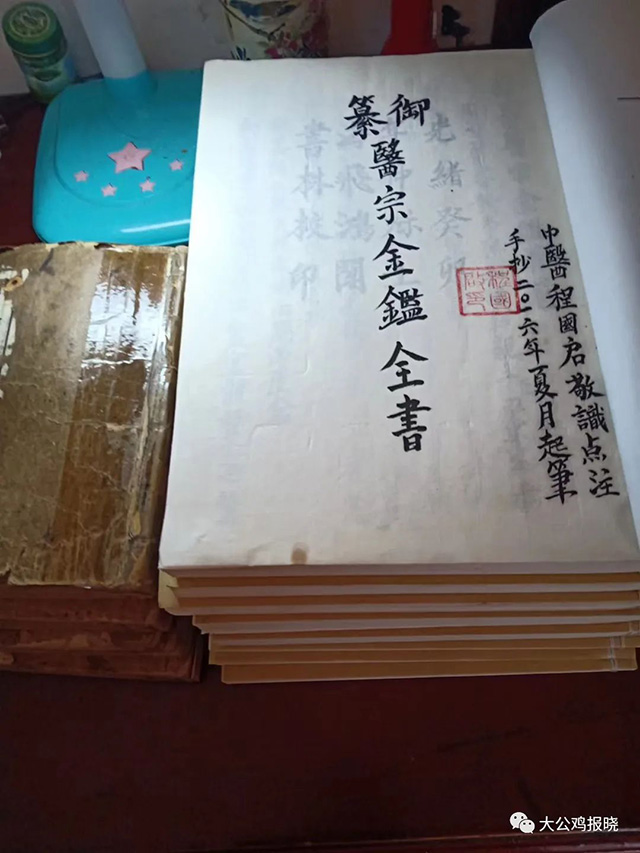 中醫程國启敬識点注
手抄二〇一六年夏月起筆
程國启印
御纂醫宗金鑑全書
光緒癸卯
飛鴻閣
書林校印
大公鸡报晓